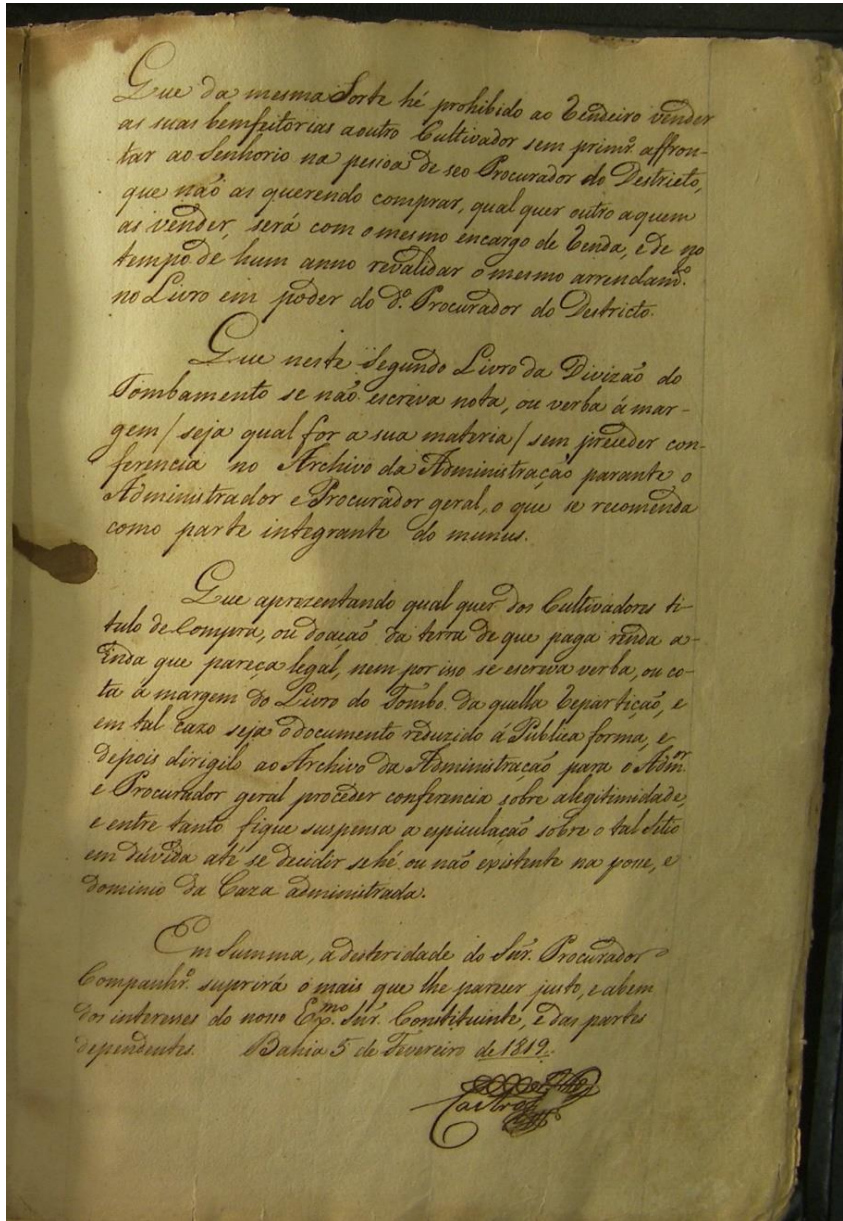 Que da mesma Sorte hé prohibido ao Rendeiro vender
as suas bemfeitorias aoutro Cultivador sem primrº affron-
tar ao Senhorio na pessoa de seo Procurador do Destricto,
que não as querendo comprar, qual quer outro aquem
as vender, será com omesmo encargo de Renda, e de no
tempo de hum anno revalidar o mesmo arrendamº
no Livro em poder do dº Procurador do Destricto.
Que neste Segundo Livro da Divizão do
Tombamento se não escreva nota, ou verba á mar-
gem / seja qual for a sua materia / sem preceder con-
ferencia no Archivo da Administração parante o
Administrador e Procurador geral, o que se recomenda
como parte integrante do munus.
Que aprezentando qual quer dos Cultivadores ti-
tulo de Compra, ou doação da terra de que paga renda a-
inda que pareça legal, nem por isso se escreva verba, ou co-
ta á margem do Livro do Tombo da quella Repartição, e
em tal cazo seja o documento reduzido á Publica forma, e
depois dirigilo ao Archivo da Administracão para o Admor
e Procurador geral proceder conferencia sobre alegitimidade,
e entre tanto fique suspensa a espiculação sobre o tal Sitio
em duvida até se decidir se hé ou não existente na posse, e
dominio da Caza administrada.
Em Summa, a desteridade do Snr. Procurador
Companhrº suprirá o mais que lhe parecer justo, e abem
dos interesses do nosso Exmo Snr. Constituinte, e das partes
dependentes. Bahia 5 de Fevereiro de 1819.
Castro